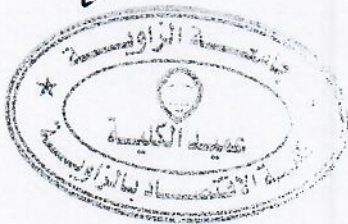 جامعـــة الزاويـــة
عميـد الكليـــة
كليـة الاقتصـــاد بالزاويـــة